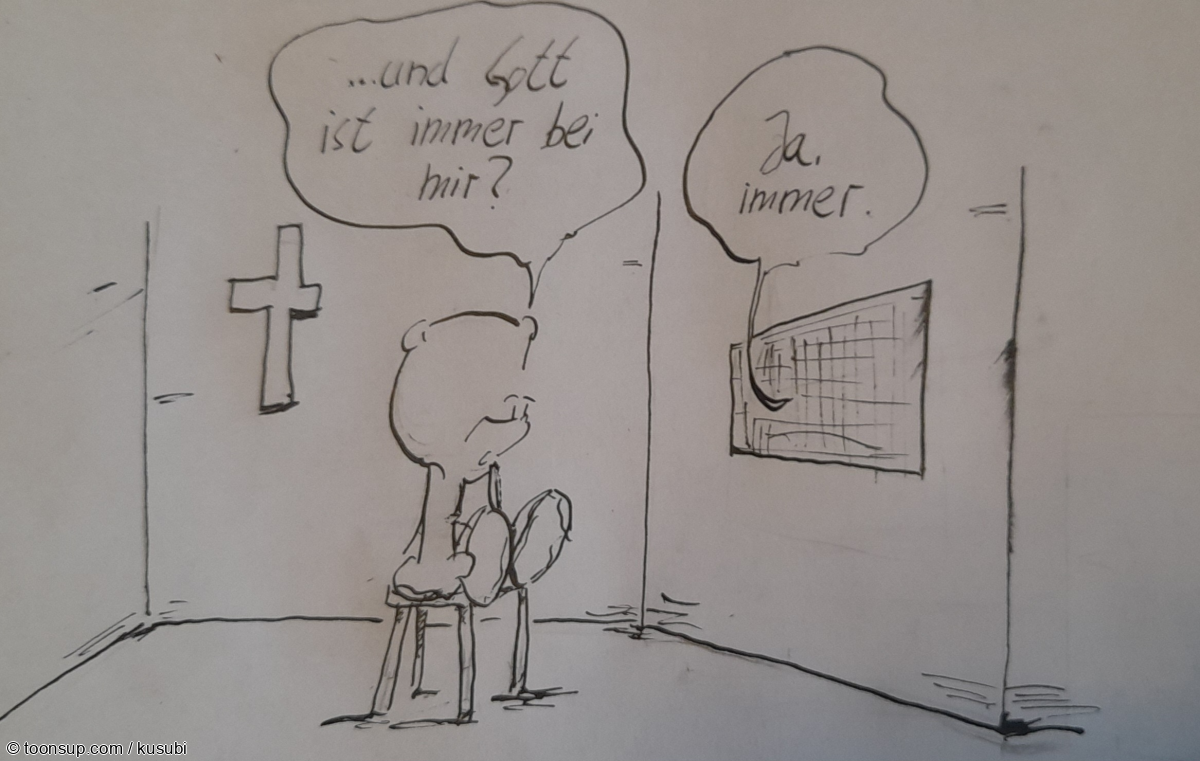 ...und Gott
ist immer bei
mir?
Ja.
immer.
© toonsup.com / kusubi